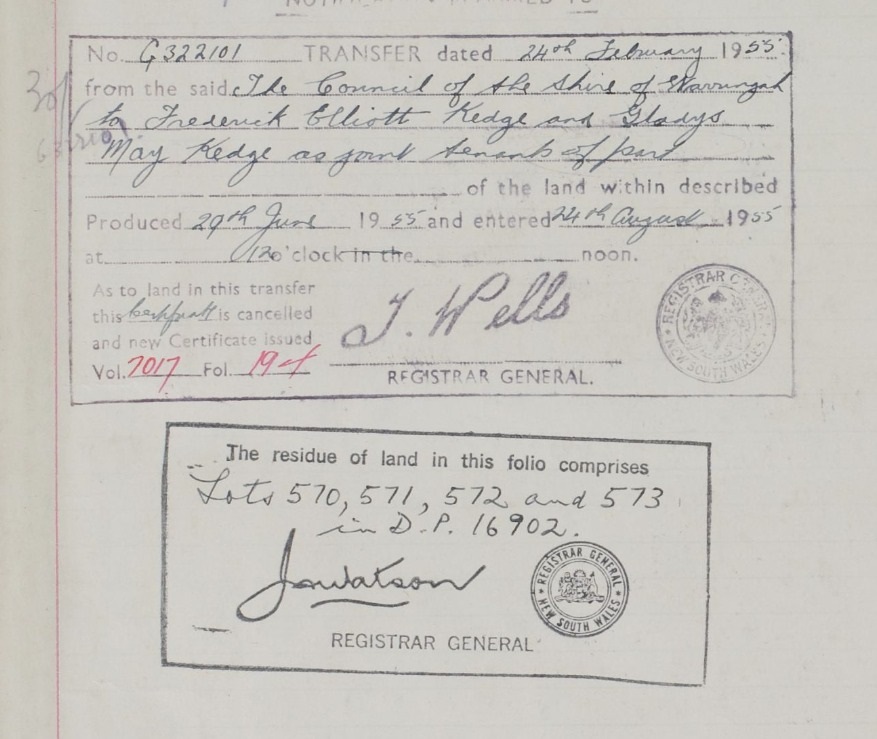 No. G322101 TRANSFER dated 24th February 1955.
from the said The Council of the Shire of Warringah
to Frederick Elliott Kedge and Gladys
May Kedge as joint tenants of part
of the land within described
Produced 29th June 1955 and entered 24th August 1955
at 12 o'clock in the noon.
As to land in this transfer
this is cancelled
and new Certificate issued
Vol. 7017 Fol. 194
T. Wells
REGISTRAR GENERAL.
REGISTRAR GENERAL NEW SOUTH WALES
The residue of land in this folio comprises
Lots 570, 571, 572 and 573
in D.P. 16902.
Jawatson
REGISTRAR GENERAL
NEW SOUTH WALES
REGISTRAR GENERAL